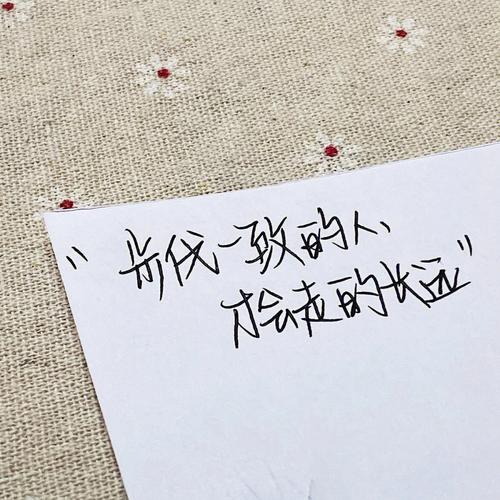 "步伐一致的人、
才会走的长远"